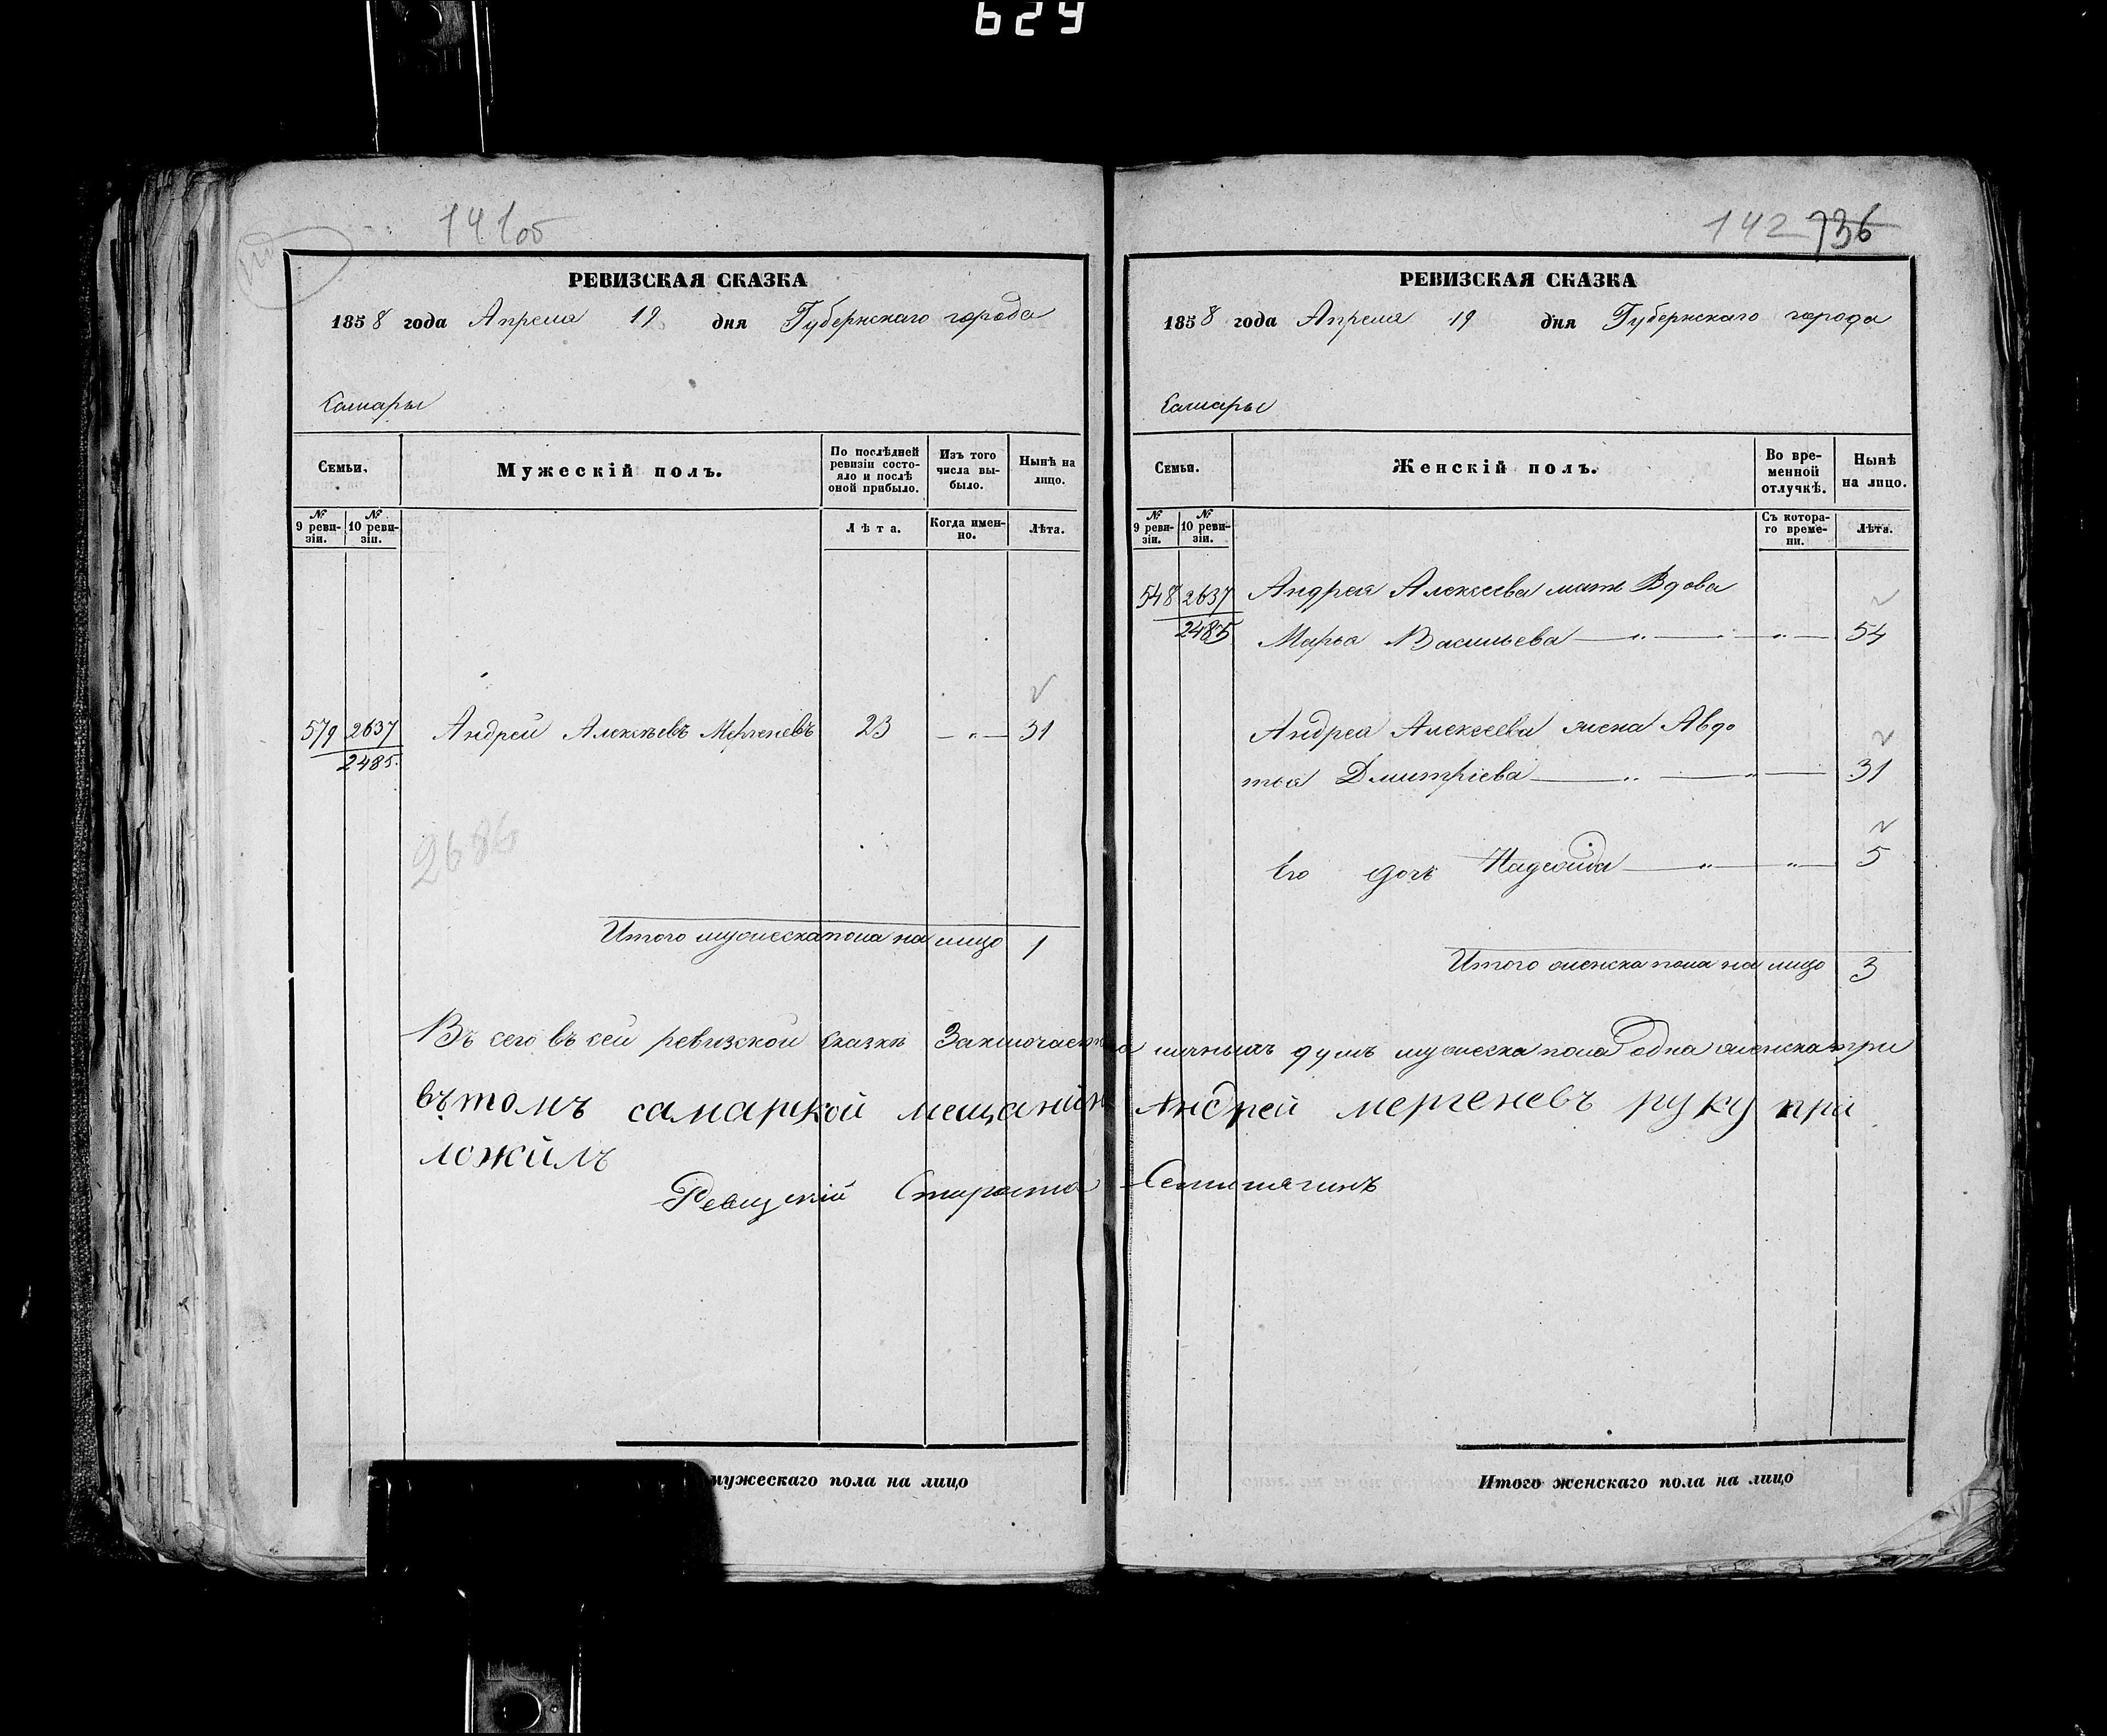 629
141об
РЕВИЗСКАЯ СКАЗКА
1858 года Апреля 19 дня Губернскаго города
Самары
Семьи.
Мужескій полъ.
По послѣдней ревизіи состояло и послѣ оной прибыло.
Изъ того числа выбыло.
Нынѣ на лицо.
№ 9 ревизіи.
№ 10 ревизіи.
Лѣта.
Когда именно.
Лѣта.
579 2637 Андрей Алексѣевъ Мергеневъ 23 — „ — 31
2485.
2686
Итого мужеска пола на лицо 1
142 736
РЕВИЗСКАЯ СКАЗКА
1858 года Апреля 19 дня Губернскаго города
Самары
Семьи.
Женскій полъ.
Во временной отлучкѣ.
Нынѣ на лицо.
№ 9 ревизіи.
№ 10 ревизіи.
Съ котораго времени.
Лѣта.
548 2637 Андрея Алексеева мать Вдова
2485 Марья Васильева — „ — „ — 54
Андрея Алексеева жена Авдо
тья Дмитріева — „ — „ — 31
Его дочь Надежда — „ — „ — 5
Итого женска пола на лицо 3
Въ сего въ сей ревизской сказкѣ Заключается наличныхъ душъ мужеска пола одна женска три
въ томъ самарской мещанинъ Андрей мергеневъ руку при
ложилъ
Ревизскій Староста
мужескаго пола на лицо
Итого женскаго пола на лицо